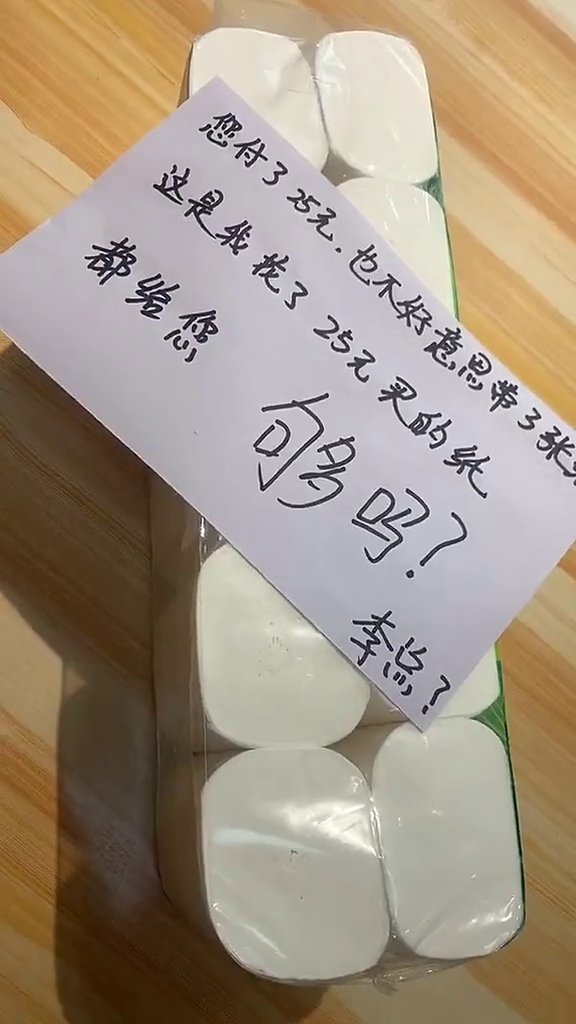 您付了25元.也不好意思带了张
这是我找了25元买的纸
都给您
够吗?
李总?